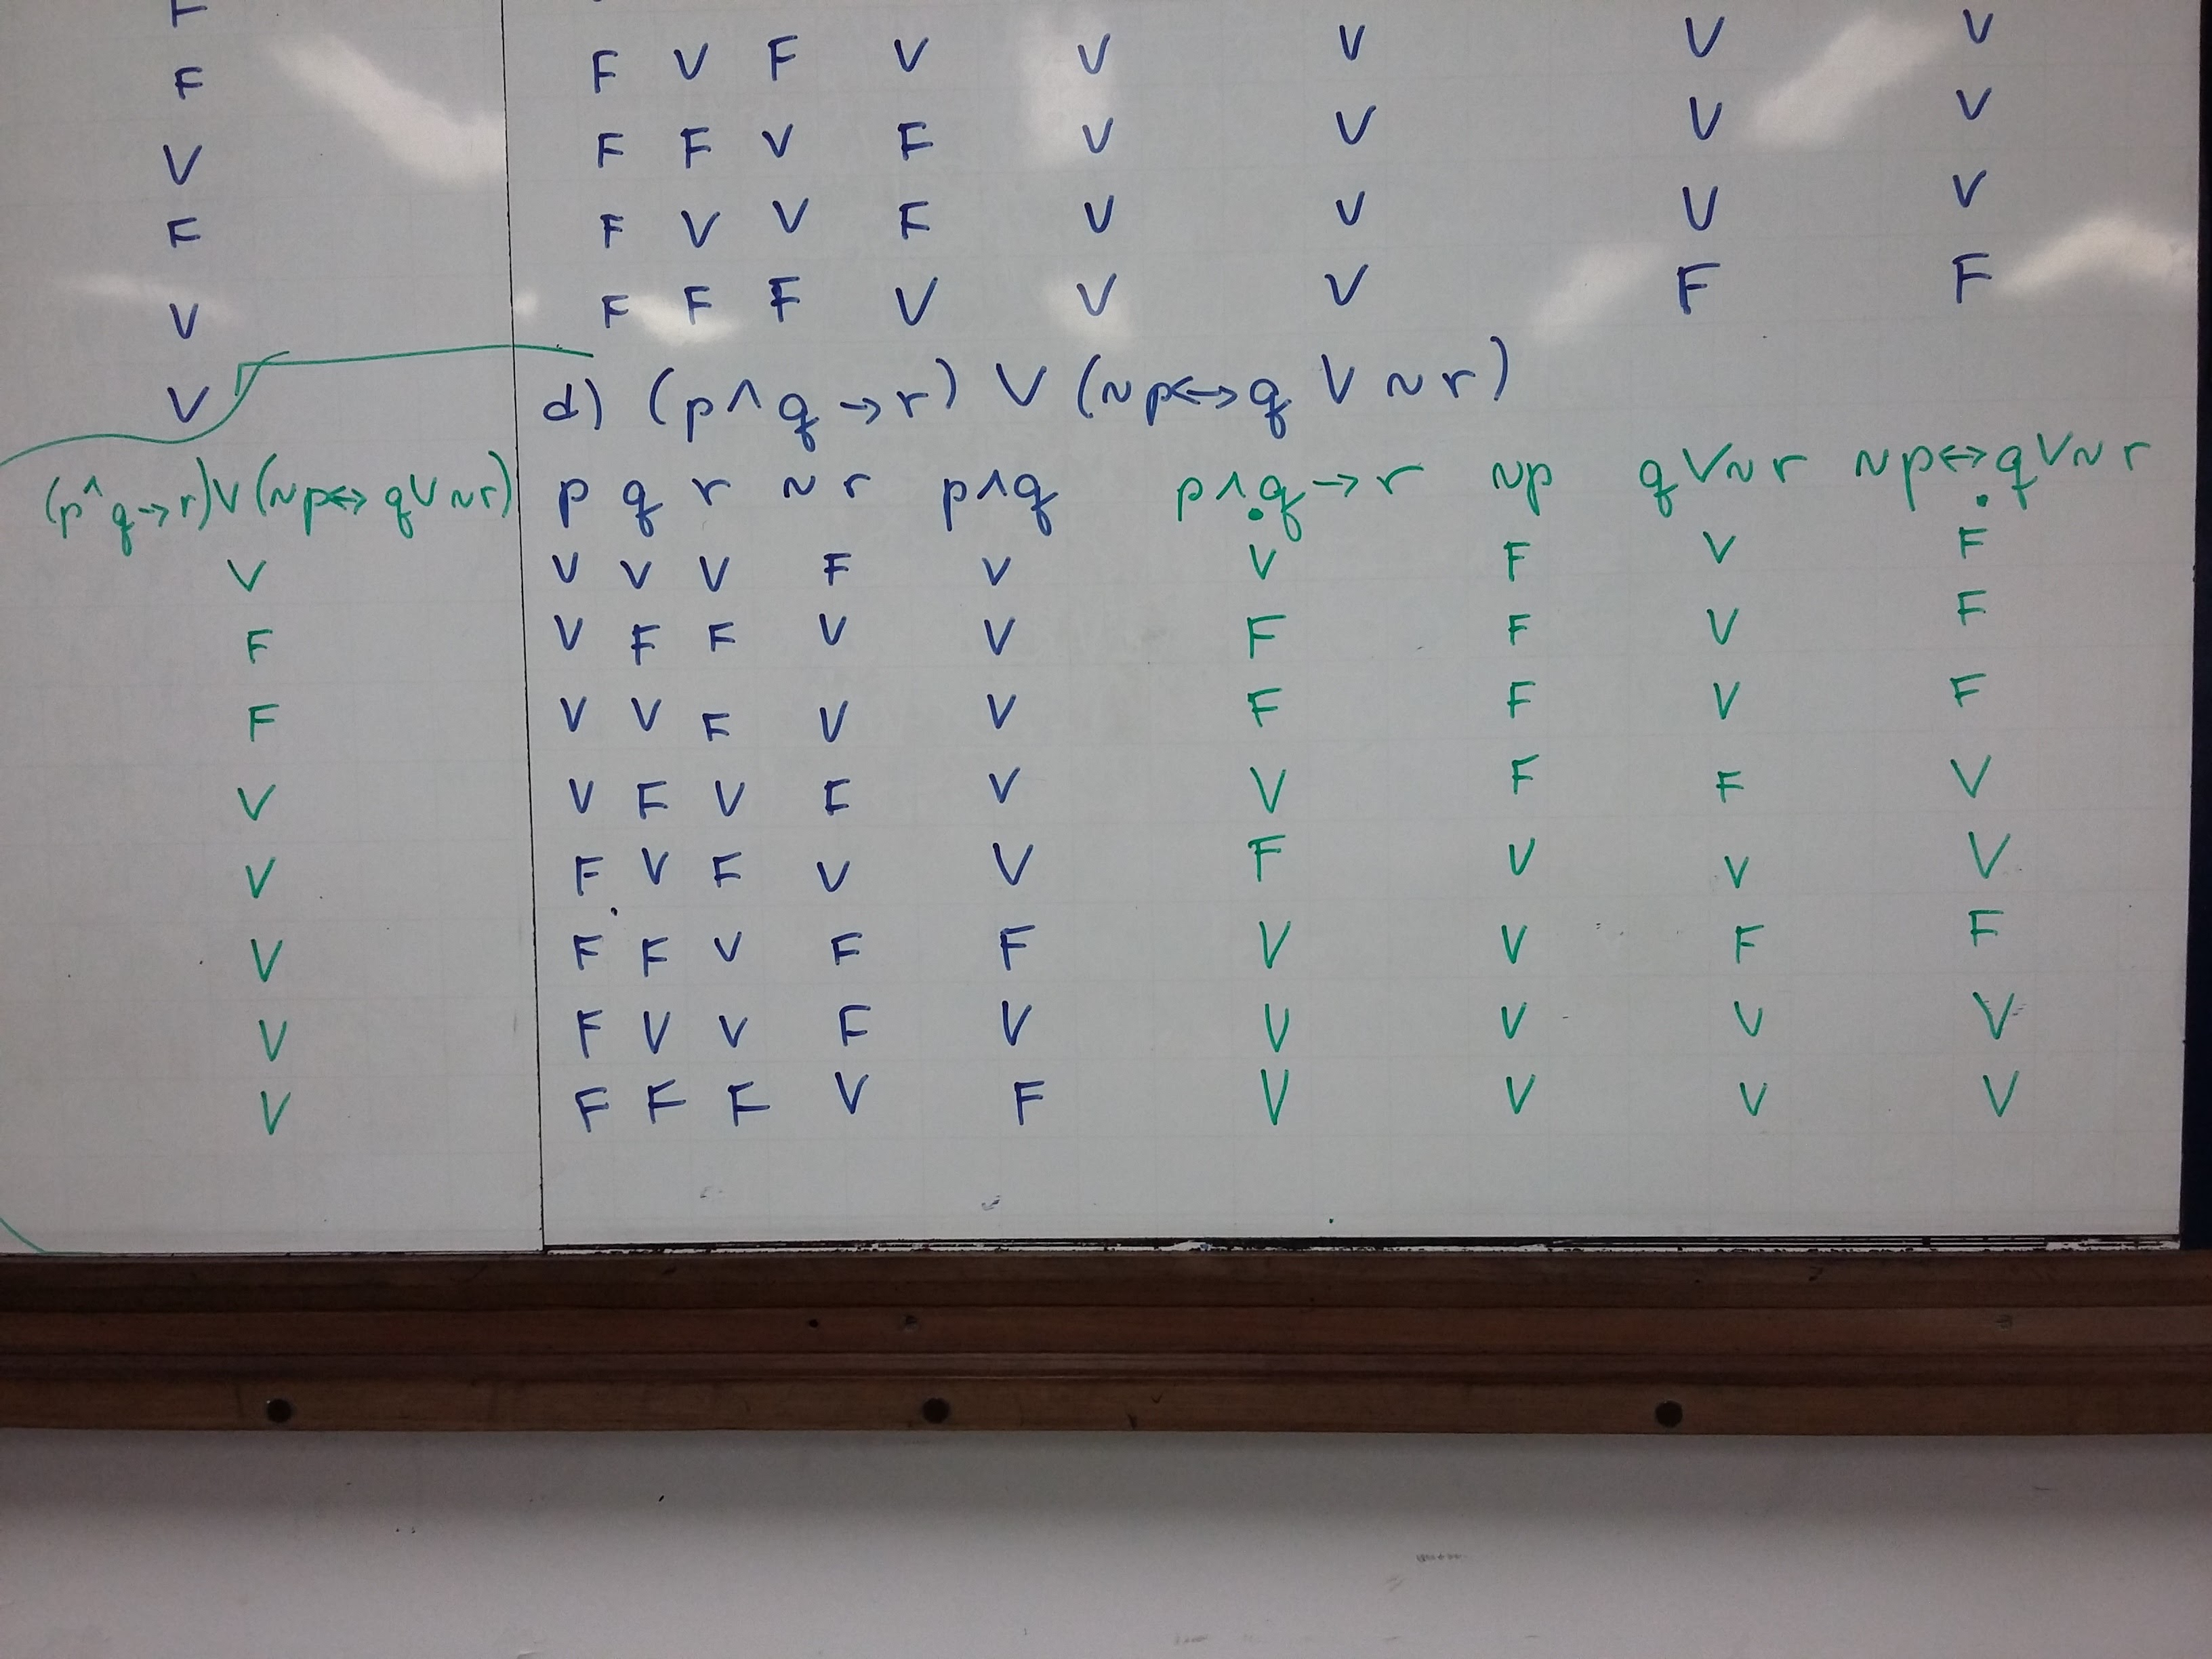 F
F V F V V V V V
F
F F V F V V V V
V
F V V F V V V V
F
F F F V V V F F
V
V
d) (p ∧ q → r) V (~p ↔ q V ~r)
(p ∧ q → r) V (~p ↔ q V ~r) p q r ~r p ∧ q p ∧ q → r ~p q V ~r ~p ↔ q V ~r
V V V V F V V F V F
F V F F V V F F V F
F V V F V V F F V F
V V F V F V V F F V
V F V F V V F V V V
V F F V F F V V F F
V F V V F V V V V V
V F F F V F V V V V